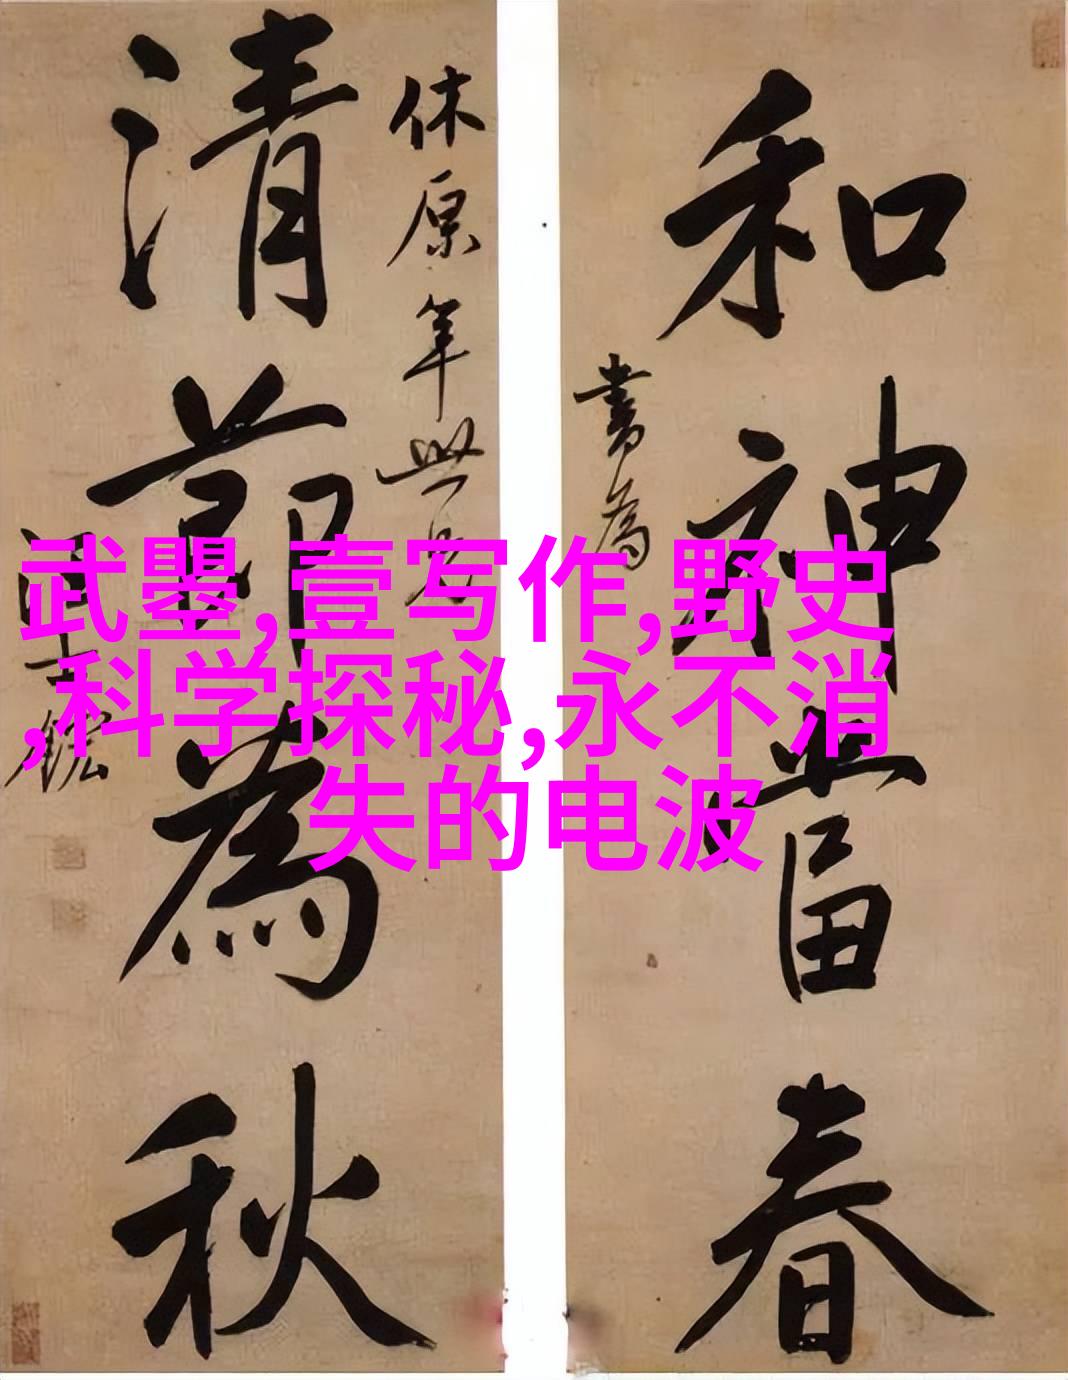 和神當春
書為
休原年世兄
清節為秋
武曌,壹写作,野史
,科学探秘,永不消
失的电波